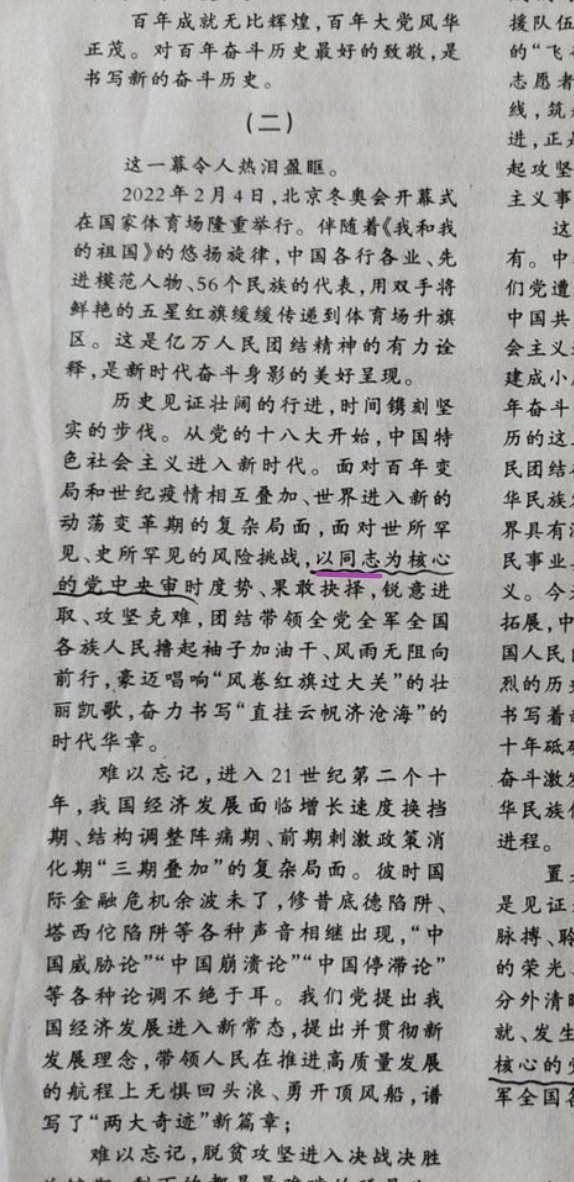 百年成就无比辉煌,百年大党风华
正茂。对百年奋斗历史最好的致敬,是
书写新的奋斗历史。
(二)
这一幕令人热泪盈眶。
2022年2月4日,北京冬奥会开幕式
在国家体育场隆重举行。伴随着《我和我
的祖国》的悠扬旋律,中国各行各业、先
进模范人物、56个民族的代表,用双手将
鲜艳的五星红旗缓缓传递到体育场升旗
区。这是亿万人民团结精神的有力诠
释,是新时代奋斗身影的美好呈现。
历史见证壮阔的行进,时间镌刻坚
实的步伐。从党的十八大开始,中国特
色社会主义进入新时代。面对百年变
局和世纪疫情相互叠加、世界进入新的
动荡变革期的复杂局面,面对世所罕
见、史所罕见的风险挑战,以同志为核心
的党中央审时度势、果敢抉择,锐意进
取、攻坚克难,团结带领全党全军全国
各族人民撸起袖子加油干、风雨无阻向
前行,豪迈唱响“风卷红旗过大关”的壮
丽凯歌,奋力书写“直挂云帆济沧海”的
时代华章。
难以忘记,进入21世纪第二个十
年,我国经济发展面临增长速度换挡
期、结构调整阵痛期、前期刺激政策消
化期“三期叠加”的复杂局面。彼时国
际金融危机余波未了,修昔底德陷阱、
塔西佗陷阱等各种声音相继出现,“中
国威胁论”“中国崩溃论”“中国停滞论”
等各种论调不绝于耳。我们党提出我
国经济发展进入新常态,提出并贯彻新
发展理念,带领人民在推进高质量发展
的航程上无惧回头浪、勇开顶风船,谱
写了“两大奇迹”新篇章;
难以忘记,脱贫攻坚进入决战决胜
援队伍
的“飞
志愿者
线,筑
进,正
起攻坚
主义事
这
有。中
们党遭
中国共
会主义
建成小
年奋斗
历的这
民团结
华民族
界具有
民事业
义。今
拓展,中
国人民
烈的历
书写着
十年砥
奋斗激
华民族
进程。
置
是见证
脉搏、聆
的荣光、
分外清
就、发生
核心的
军全国